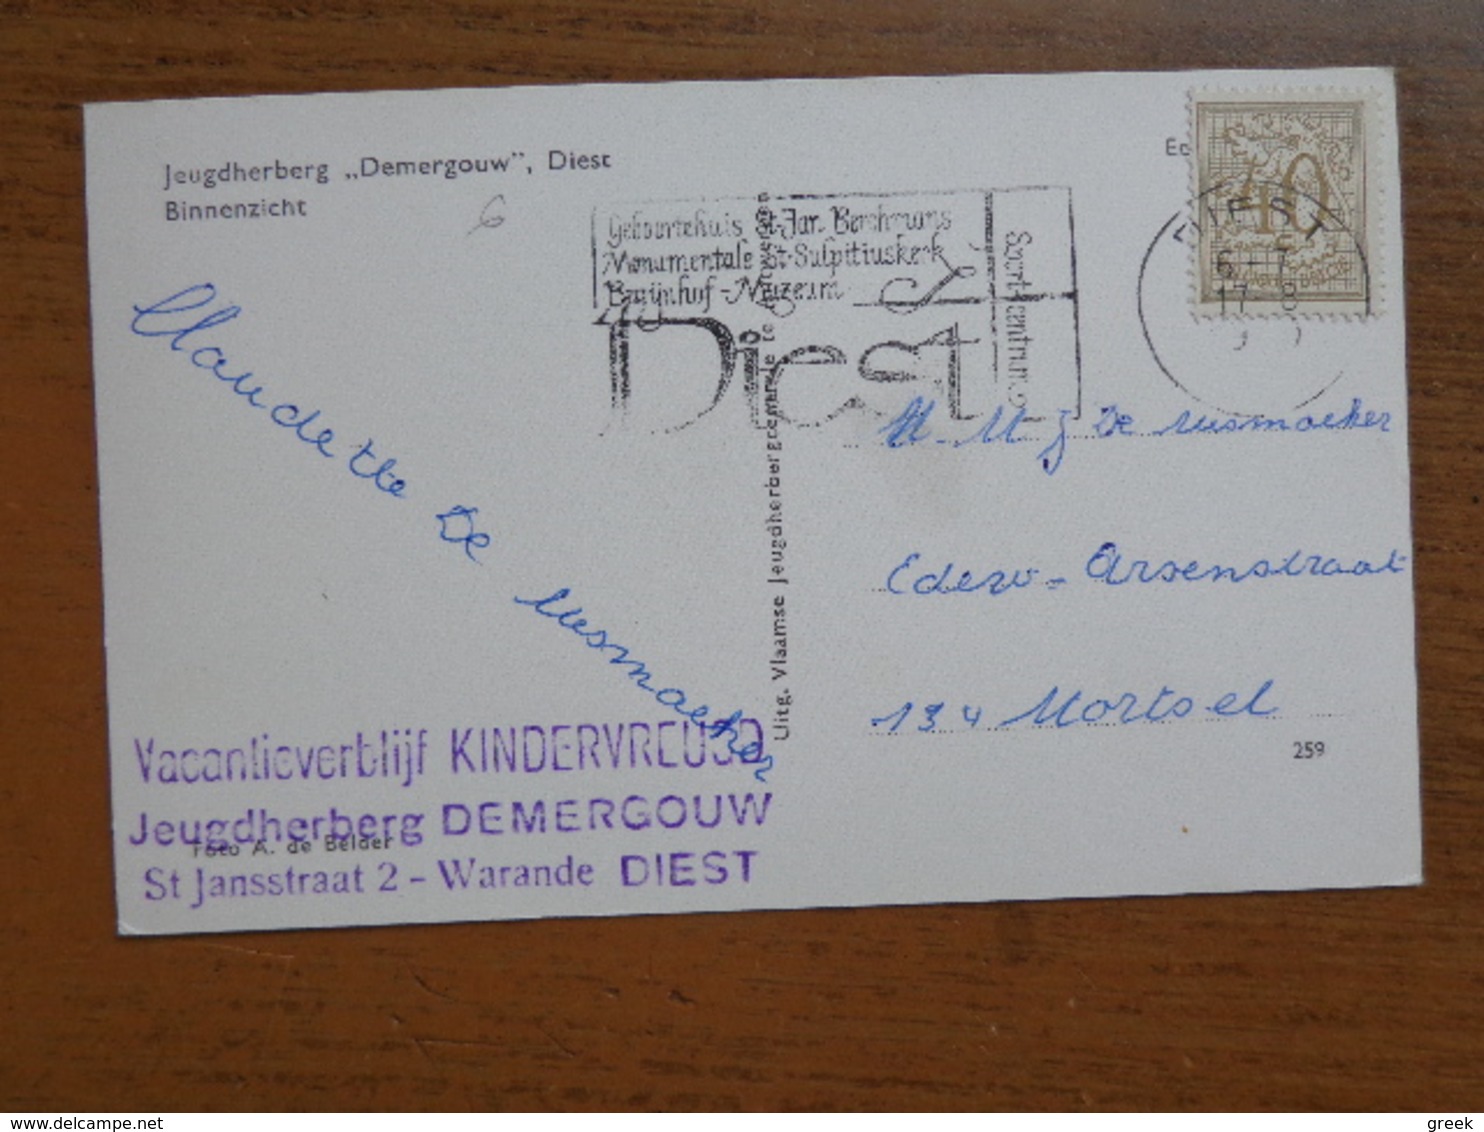 Jeugdherberg „Demergouw”, Diest
Binnenzicht
6
Geboortehuis St. Jan Berchmans
Monumentale St-Sulpitiuskerk
Begijnhof - Muzeum
Diest
Sportcentrum
DIEST
6-7
17
40
Claudette De Musmaeker
M. M J De Musmaeker
Edew- Arsenstraat
134 Mortsel
259
Uitg. Vlaamse Jeugdherbergcentrale te Antwerpen
Vacantieverblijf KINDERVREUGD
Jeugdherberg DEMERGOUW
Foto A. de Belder
St Jansstraat 2 - Warande DIEST
greek